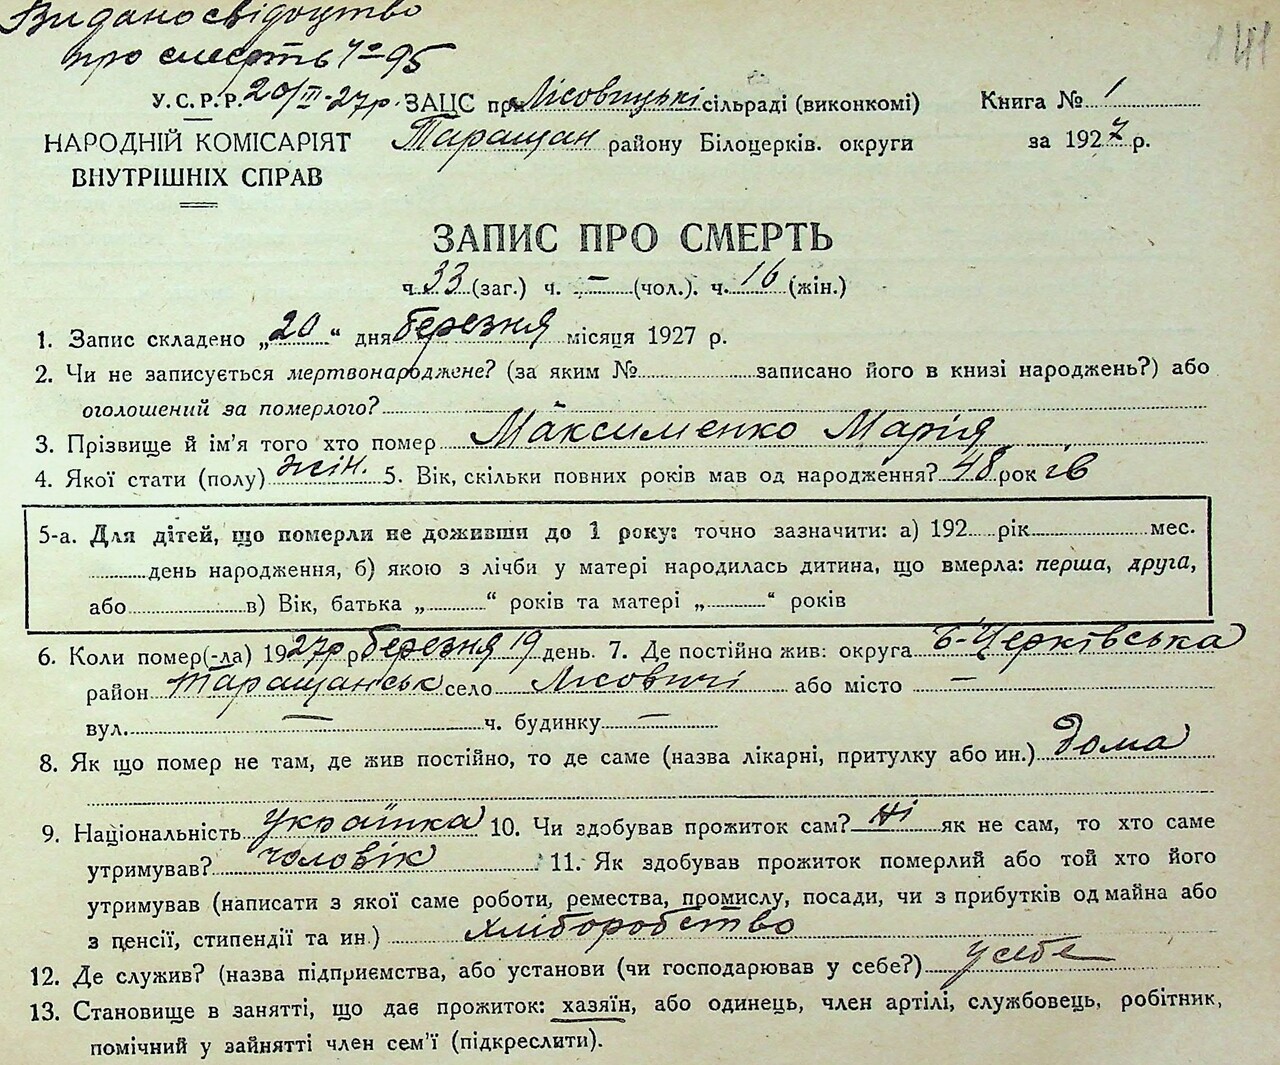 Видано свідоцтво
про смерть Ч° 95
У.С.Р.Р. 20/III-27р. ЗАЦС при Лісовицькі сільраді (виконкомі) Книга № 1
НАРОДНІЙ КОМІСАРІЯТ Таращан району Білоцерків. округи за 1927 р.
ВНУТРІШНІХ СПРАВ
ЗАПИС ПРО СМЕРТЬ
ч. 33 (заг.) ч. — (чол.). ч. 16 (жін.)
1. Запис складено „20“ дня березня місяця 1927 р.
2. Чи не записується мертвонароджене? (за яким №............записано його в книзі народжень?) або
оголошений за померлого?
3. Прізвище й ім'я того хто помер Максименко Марія
4. Якої стати (полу) жін. 5. Вік, скільки повних років мав од народження? 48 рок ів
5-а. Для дітей, що померли не доживши до 1 року: точно зазначити: а) 192....рік............мес.
.........день народження, б) якою з лічби у матері народилась дитина, що вмерла: перша, друга,
або..................в) Вік, батька „.........“ років та матері „.........“ років
6. Коли помер(-ла) 1927р р. березня 19 день. 7. Де постійно жив: округа Б-Церківська
район Таращанськ село Лісовичі або місто —
вул. — ч. будинку —
8. Як що помер не там, де жив постійно, то де саме (назва лікарні, притулку або ин.) дома
9. Національність українка 10. Чи здобував прожиток сам? Ні як не сам, то хто саме
утримував? чоловік 11. Як здобував прожиток померлий або той хто його
утримував (написати з якої саме роботи, ремества, промислу, посади, чи з прибутків од майна або
з пенсії, стипендії та ин.) Хліборобство
12. Де служив? (назва підприємства, або установи (чи господарював у себе?) у себе
13. Становище в занятті, що дає прожиток: хазяїн, або одинець, член артілі, службовець, робітник,
помічний у зайнятті член сем'ї (підкреслити).